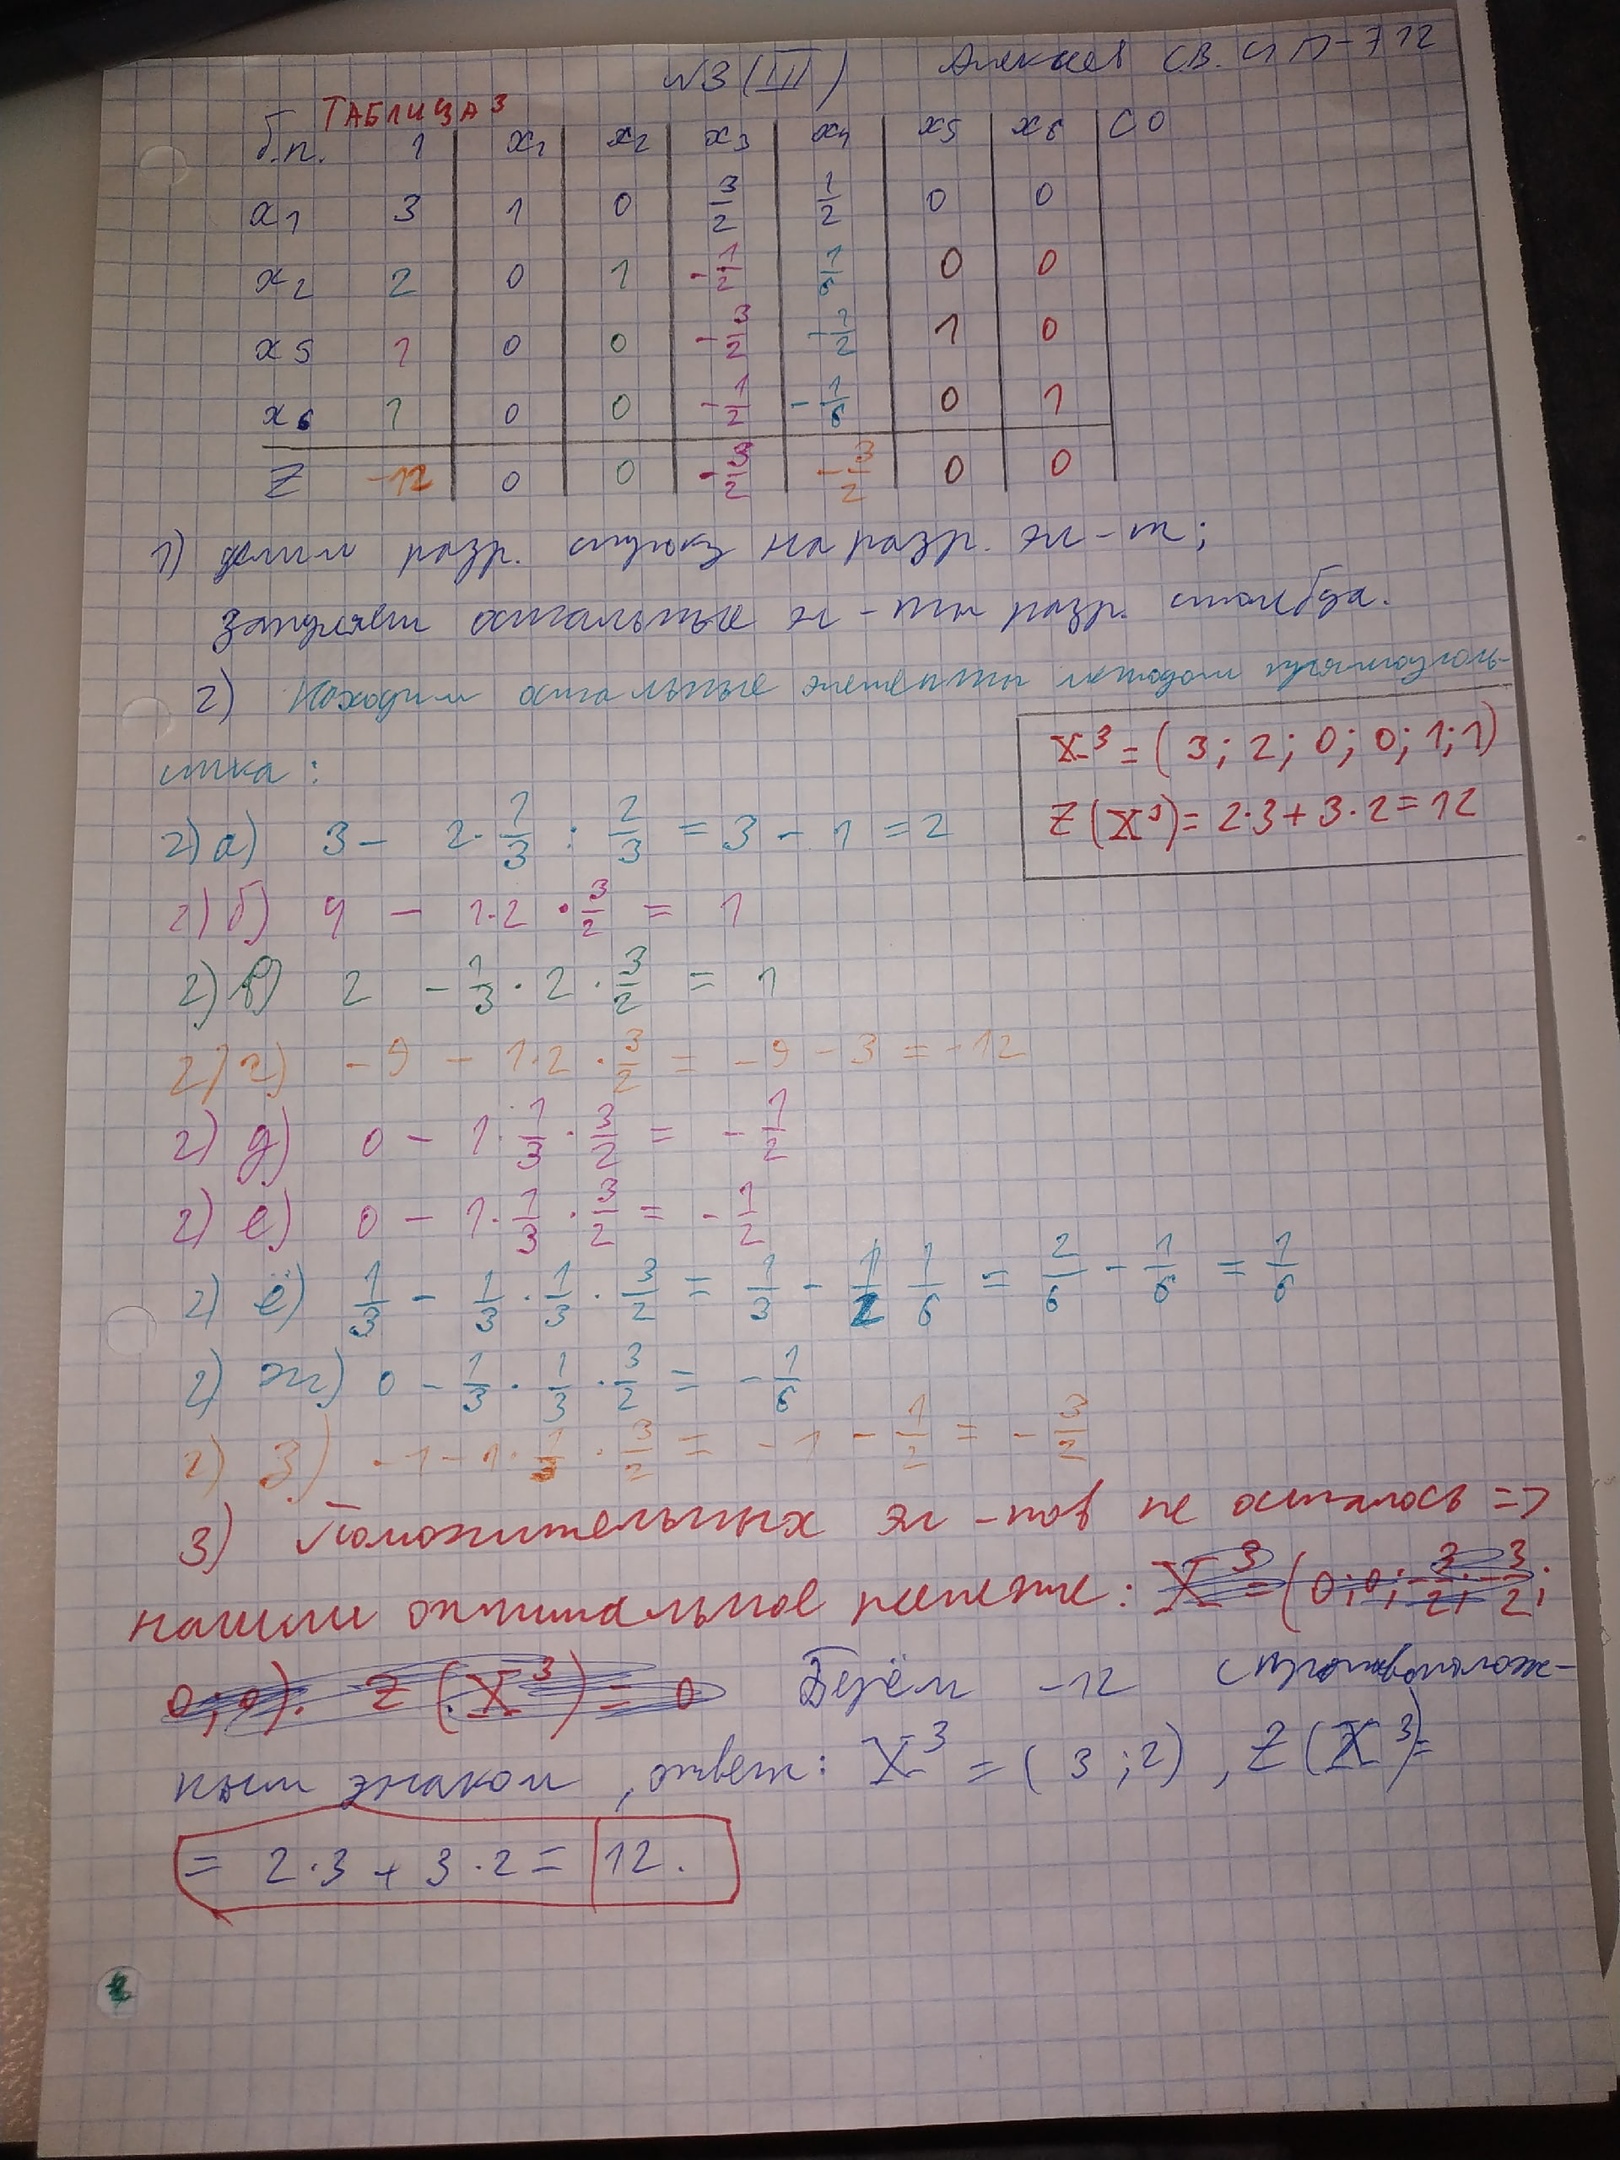 №3 (III) Алексеев С.В. ИП-712
ТАБЛИЦА 3
б.п. 1 x1 x2 x3 x4 x5 x6 СО
x1 3 1 0 3/2 1/2 0 0
x2 2 0 1 -1/2 1/6 0 0
x5 1 0 0 -3/2 -1/2 1 0
x6 1 0 0 -1/2 -1/6 0 1
Z -12 0 0 -3/2 -3/2 0 0
1) делим разр. строку на разр. эл-т;
зануляем остальные эл-ты разр. столбца.
2) Находим остальные элементы методом прямоуголь-
ника:
X³ = (3; 2; 0; 0; 1; 1)
Z(X³) = 2·3 + 3·2 = 12
2) а) 3 - 2·1/3 : 2/3 = 3 - 1 = 2
2) б) 4 - 1·2·3/2 = 1
2) в) 2 - 1/3·2·3/2 = 1
2) г) -9 - 1·2·3/2 = -9 - 3 = -12
2) д) 0 - 1·1/3·3/2 = -1/2
2) е) 0 - 1·1/3·3/2 = -1/2
2) ё) 1/3 - 1/3·1/3·3/2 = 1/3 - 1/6 = 2/6 - 1/6 = 1/6
2) ж) 0 - 1/3·1/3·3/2 = -1/6
2) з) -1 - 1·1/3·3/2 = -1 - 1/2 = -3/2
3) Положительных эл-тов не осталось =>
нашли оптимальное решение: X³ = (0; 0; -3/2; -3/2;
0; 0). Z(X³) = 0 Берём -12 с противополож-
ным знаком, ответ: X³ = (3; 2), Z(X³) =
= 2·3 + 3·2 = 12.